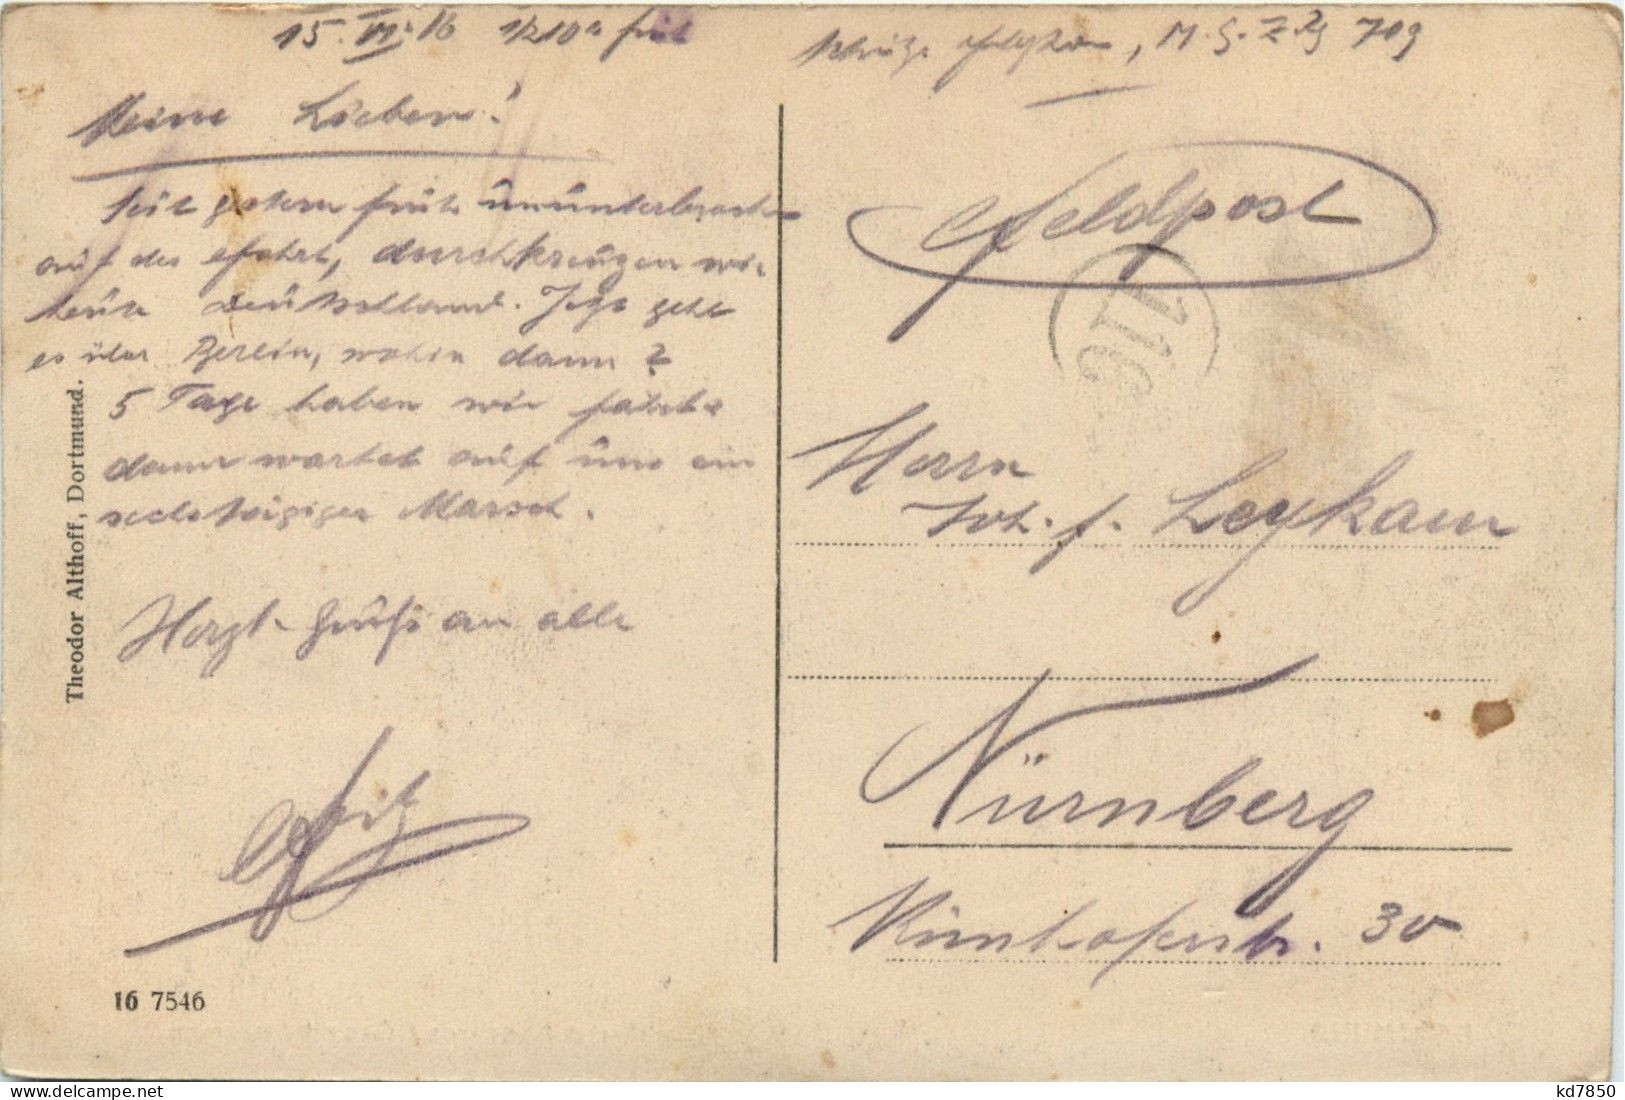 15. VI. 16 1/210h früh
M. G. Z. Zg 709
Meine Lieben!
Seit gestern früh ununterbrochen
auf der Fahrt, durchkreuzen wir
heute Deutschland. Jetzt geht
es über Berlin, wohin dann?
5 Tage haben wir Fahrt
dann wartet auf uns ein
sechstägiger Marsch.
Herzl. Grüße an alle
Fritz
Feldpost
116
Herrn
Joh. F. Leykam
Nürnberg
str. 30
Theodor Althoff, Dortmund.
16 7546
kd7850